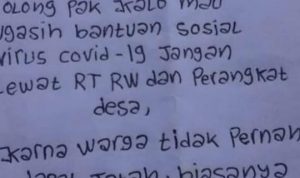 olong Pak Kalo mau
ngasih bantuan sosial
virus covid-19 Jangan
Lewat RT RW dan Perangkat
desa,
Karna warga tidak Pernah
biasanya